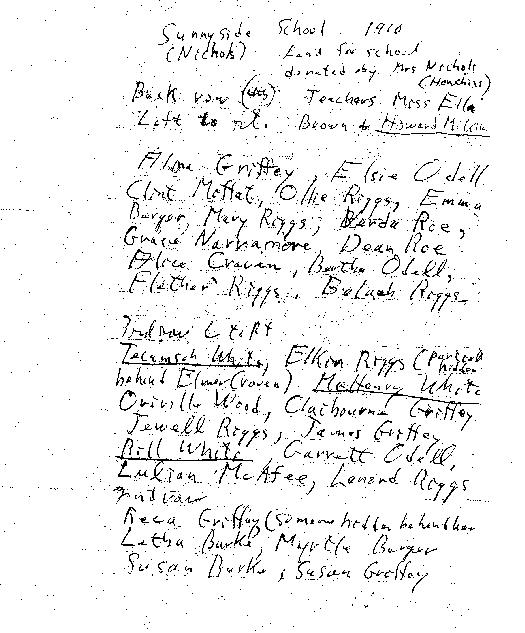 Sunnyside School 1910
(Nichols) Land for school
donated by Mrs Nichols
(Henchins)
Back row Teachers Miss Ella
Left to rt. Brown & Howard
Alma Griffey, Elsie Odell
Clint Moffat, Ollie Riggs, Emma
Barger, Mary Riggs, Verda Roe,
Gracie Narramore, Dean Roe
Alice Craven, Bertha Odell,
Flether Riggs, Beluah Riggs
3rd row Left
Tecumseh White, Elkin Riggs (partially hidden
behind Elmer Craven) McHenry White
Orirville Wood, Claibourne Griffey
Jewell Riggs, James Griffey
Bill White, Garrett Odell,
Lulian McAfee, Lenord Riggs
2nd row
Reca Griffey (someone hidden behind her
Letha Burke, Myrtle Barger
Susan Burke, Susan Griffey